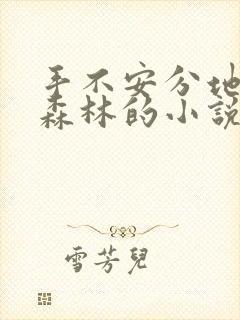 手不安分地
森林的小說
雪芳兒